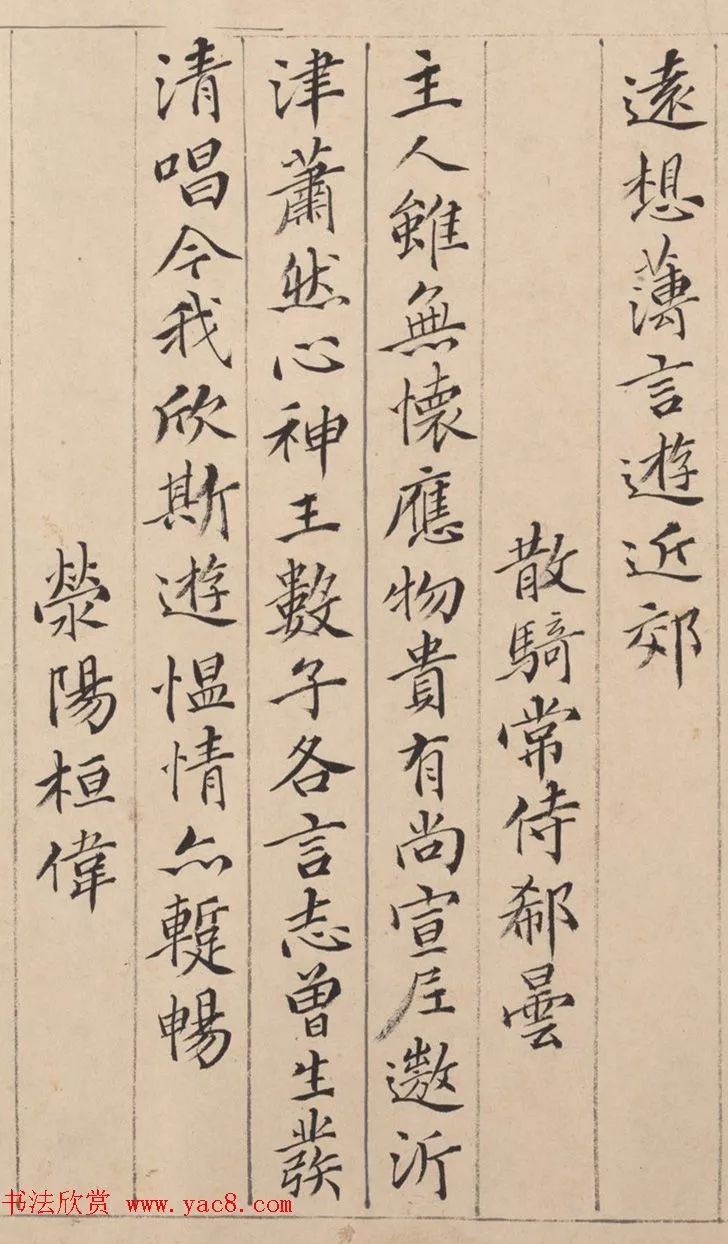 遠想蕩言遊近郊
散騎常侍郗曇
主人雖無懷應物貴有尚宣尼遨沂
津蕭然心神王數子各言志曾生發
清唱今我欣斯遊慍情亦蹔暢
滎陽桓偉
书法欣赏 www.yac8.com